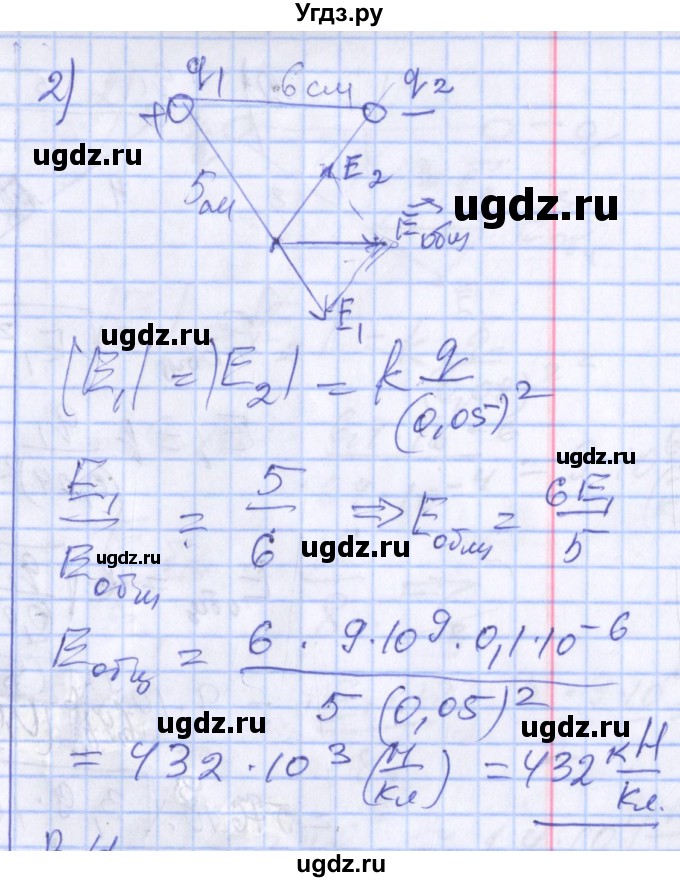 Угдз.ру
2) q₁ 6 см q₂
+ −
ugdz.ru
E₂
5 см
ugdz.ru
E⃗общ
ugdz.ru
E₁
|E₁| = |E₂| = k q/(0,05)²
ugdz.ru
E₁/Eобщ = 5/6 ⇒ Eобщ = 6E₁/5
ugdz.ru
ugdz.ru
ugdz.ru
Eобщ = 6 · 9 · 10⁹ · 0,1 · 10⁻⁶ / 5 (0,05)²
ugdz.ru
ugdz.ru
= 432 · 10³ (Н/кл) = 432 кН/кл.
ugdz.ru